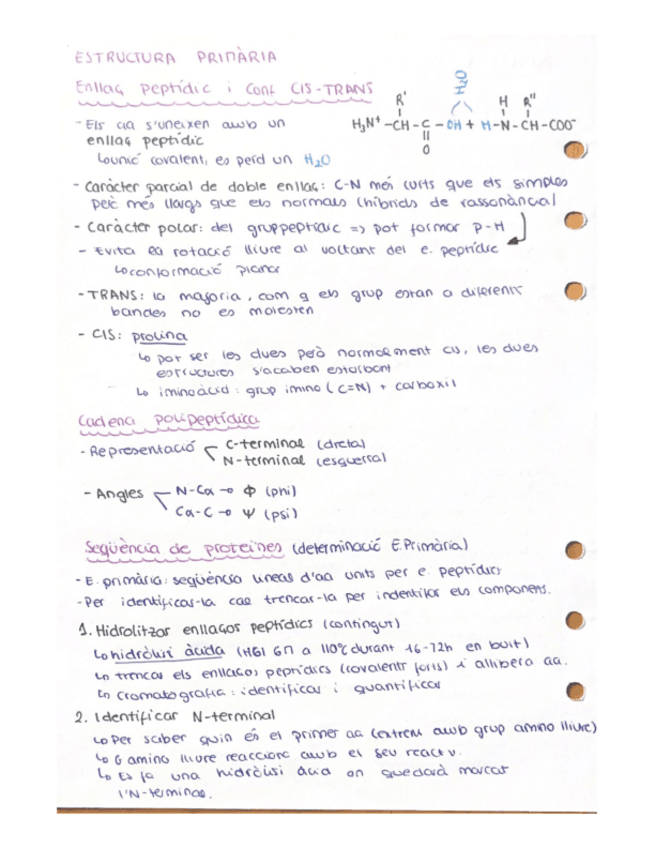 ESTRUCTURA PRIMÀRIA
Enllaç peptídic i Conf CIS-TRANS
H₂O
R' H R''
H₃N⁺-CH-C-OH + H-N-CH-COO⁻
O
- Els aa s'uneixen amb un
enllaç peptídic
↳ unió covalent, es perd un H₂O
- Caràcter parcial de doble enllaç: C-N més curts que els simples
però més llargs que els normals (híbrids de ressonància)
- Caràcter polar: del grup peptídic => pot formar p-H
- Evita la rotació lliure al voltant del e. peptídic
↳ conformació plana
- TRANS: la majoria, com q els grup estan a diferent
bandes no es molesten
- CIS: prolina
↳ pot ser les dues però normalment cis, les dues
estructures s'acaben estorbant
↳ iminoàcid: grup imino (C=N) + carboxil
Cadena polipeptídica
- Representació C-terminal (dreta)
N-terminal (esquerra)
- Angles N-Cα → Φ (phi)
Cα-C → Ψ (psi)
Seqüència de proteïnes (determinació E.Primària)
- E. primària: seqüència lineal d'aa units per e. peptídic
- Per identificar-la cal trencar-la per indentificar els components.
1. Hidrolitzar enllaços peptídics (contingut)
↳ hidròlisi àcida (HCl 6M a 110°C durant 16-72h en buit)
↳ trenca els enllaços peptídics (covalents forts) i allibera aa.
↳ cromatografia: identificar i quantificar
2. Identificar N-terminal
↳ Per saber quin és el primer aa (extrem amb grup amino lliure)
↳ G amino lliure reacciona amb el seu reactiu.
↳ Es fa una hidròlisi àcida on quedarà marcat
l'N-terminal.